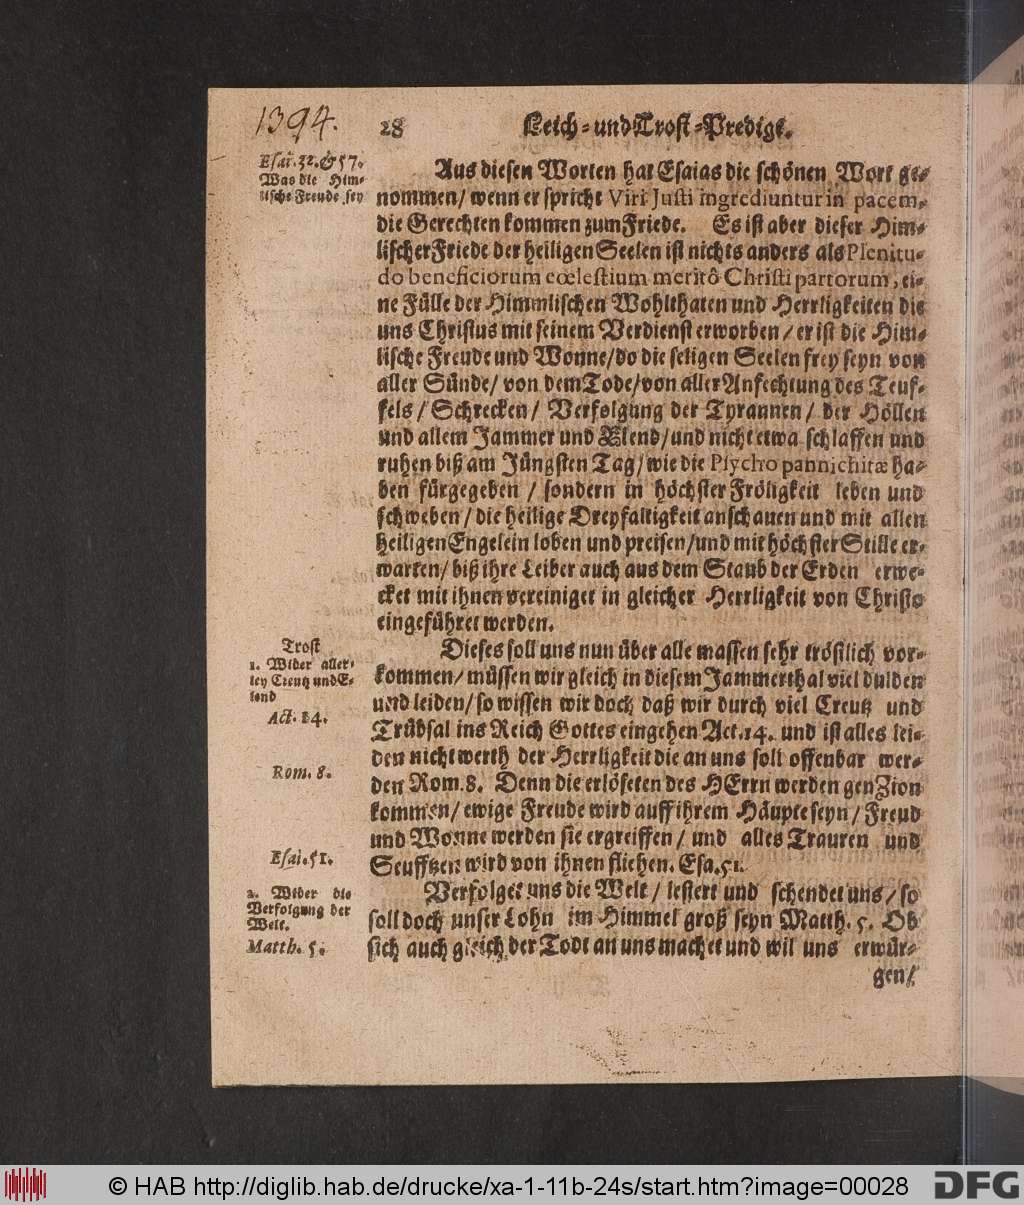 1394.
28 Leich- und Trost-Predigt.
Esai. 32. & 57.
Was die Him-
lische Freude sey
Aus diesen Worten hat Esaias die schönen Wort ge-
nommen/ wenn er spricht Viri Justi ingrediuntur in pacem,
die Gerechten kommen zum Friede. Es ist aber dieser Him-
lischer Friede der heiligen Seelen ist nichts anders als Plenitu-
do beneficiorum cœlestium meritô Christi partorum, ei-
ne Fülle der Himmlischen Wohlthaten und Herrligkeiten die
uns Christus mit seinem Verdienst erworben/ er ist die Him-
lische Freude und Wonne/ do die seligen Seelen frey seyn von
aller Sünde/ von dem Tode/ von aller Anfechtung des Teuf-
fels/ Schrecken/ Verfolgung der Tyrannen/ der Höllen
und allem Jammer und Elend/ und nicht etwa schlaffen und
ruhen biß am Jüngsten Tag/ wie die Psychopannichitæ ha-
ben fürgegeben/ sondern in höchster Fröligkeit leben und
schweben/ die heilige Dreyfaltigkeit anschauen und mit allen
heiligen Engelein loben und preisen/ und mit höchster Stille er-
warten/ biß ihre Leiber auch aus dem Staub der Erden erwe-
cket mit ihnen vereiniget in gleicher Herrligkeit von Christo
eingeführet werden.
Trost
1. Wider aller-
ley Creutz und E-
lend
Act. 14.
Rom. 8.
Esai. 51.
Dieses soll uns nun über alle massen sehr tröstlich vor-
kommen/ müssen wir gleich in diesem Jammerthal viel dulden
und leiden/ so wissen wir doch daß wir durch viel Creutz und
Trübsal ins Reich Gottes eingehen Act. 14. und ist alles lei-
den nicht werth der Herrligkeit die an uns soll offenbar wer-
den Rom. 8. Denn die erlöseten des HErrn werden gen Zion
kommen/ ewige Freude wird auff ihrem Häupte seyn/ Freud
und Wonne werden sie ergreiffen/ und alles Trauren und
Seufftzen wird von ihnen fliehen. Esa. 51.
2. Wider die
Verfolgung der
Welt.
Matth. 5.
Verfolget uns die Welt/ lestert und schendet uns/ so
soll doch unser Lohn im Himmel groß seyn Matth. 5. Ob
sich auch gleich der Todt an uns machet und wil uns erwür-
gen/
© HAB http://diglib.hab.de/drucke/xa-1-11b-24s/start.htm?image=00028
DFG